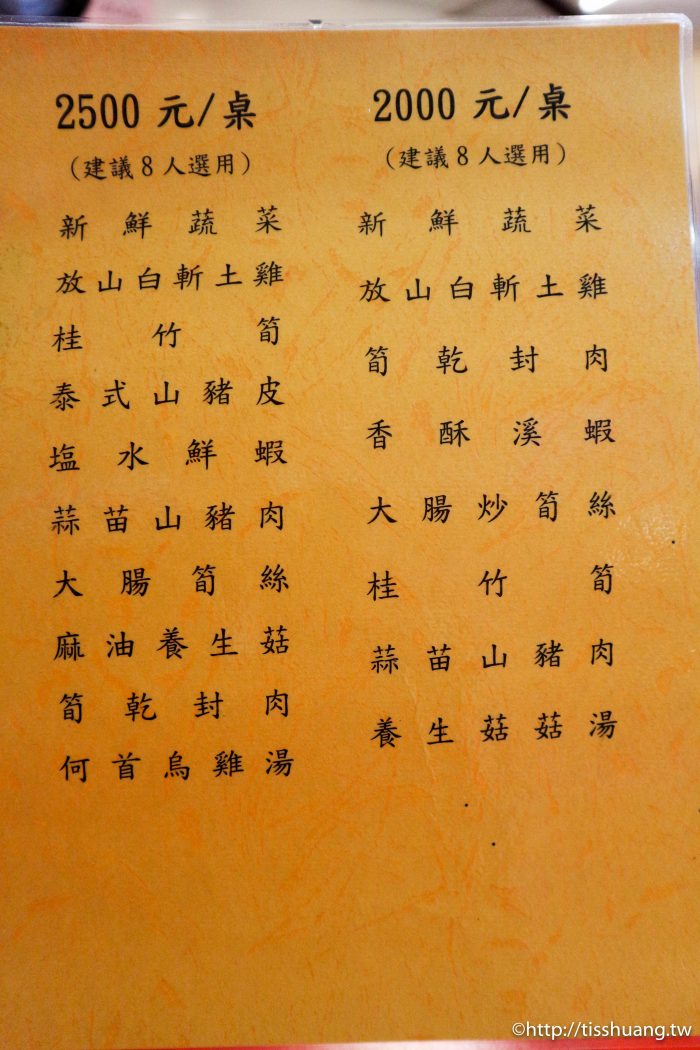 2500 元/桌
（建議 8 人選用）
新鮮蔬菜
放山白斬土雞
桂竹筍
泰式山豬皮
塩水鮮蝦
蒜苗山豬肉
大腸筍絲
麻油養生菇
筍乾封肉
何首烏雞湯
2000 元/桌
（建議 8 人選用）
新鮮蔬菜
放山白斬土雞
筍乾封肉
香酥溪蝦
大腸炒筍絲
桂竹筍
蒜苗山豬肉
養生菇菇湯
©http://tisshuang.tw